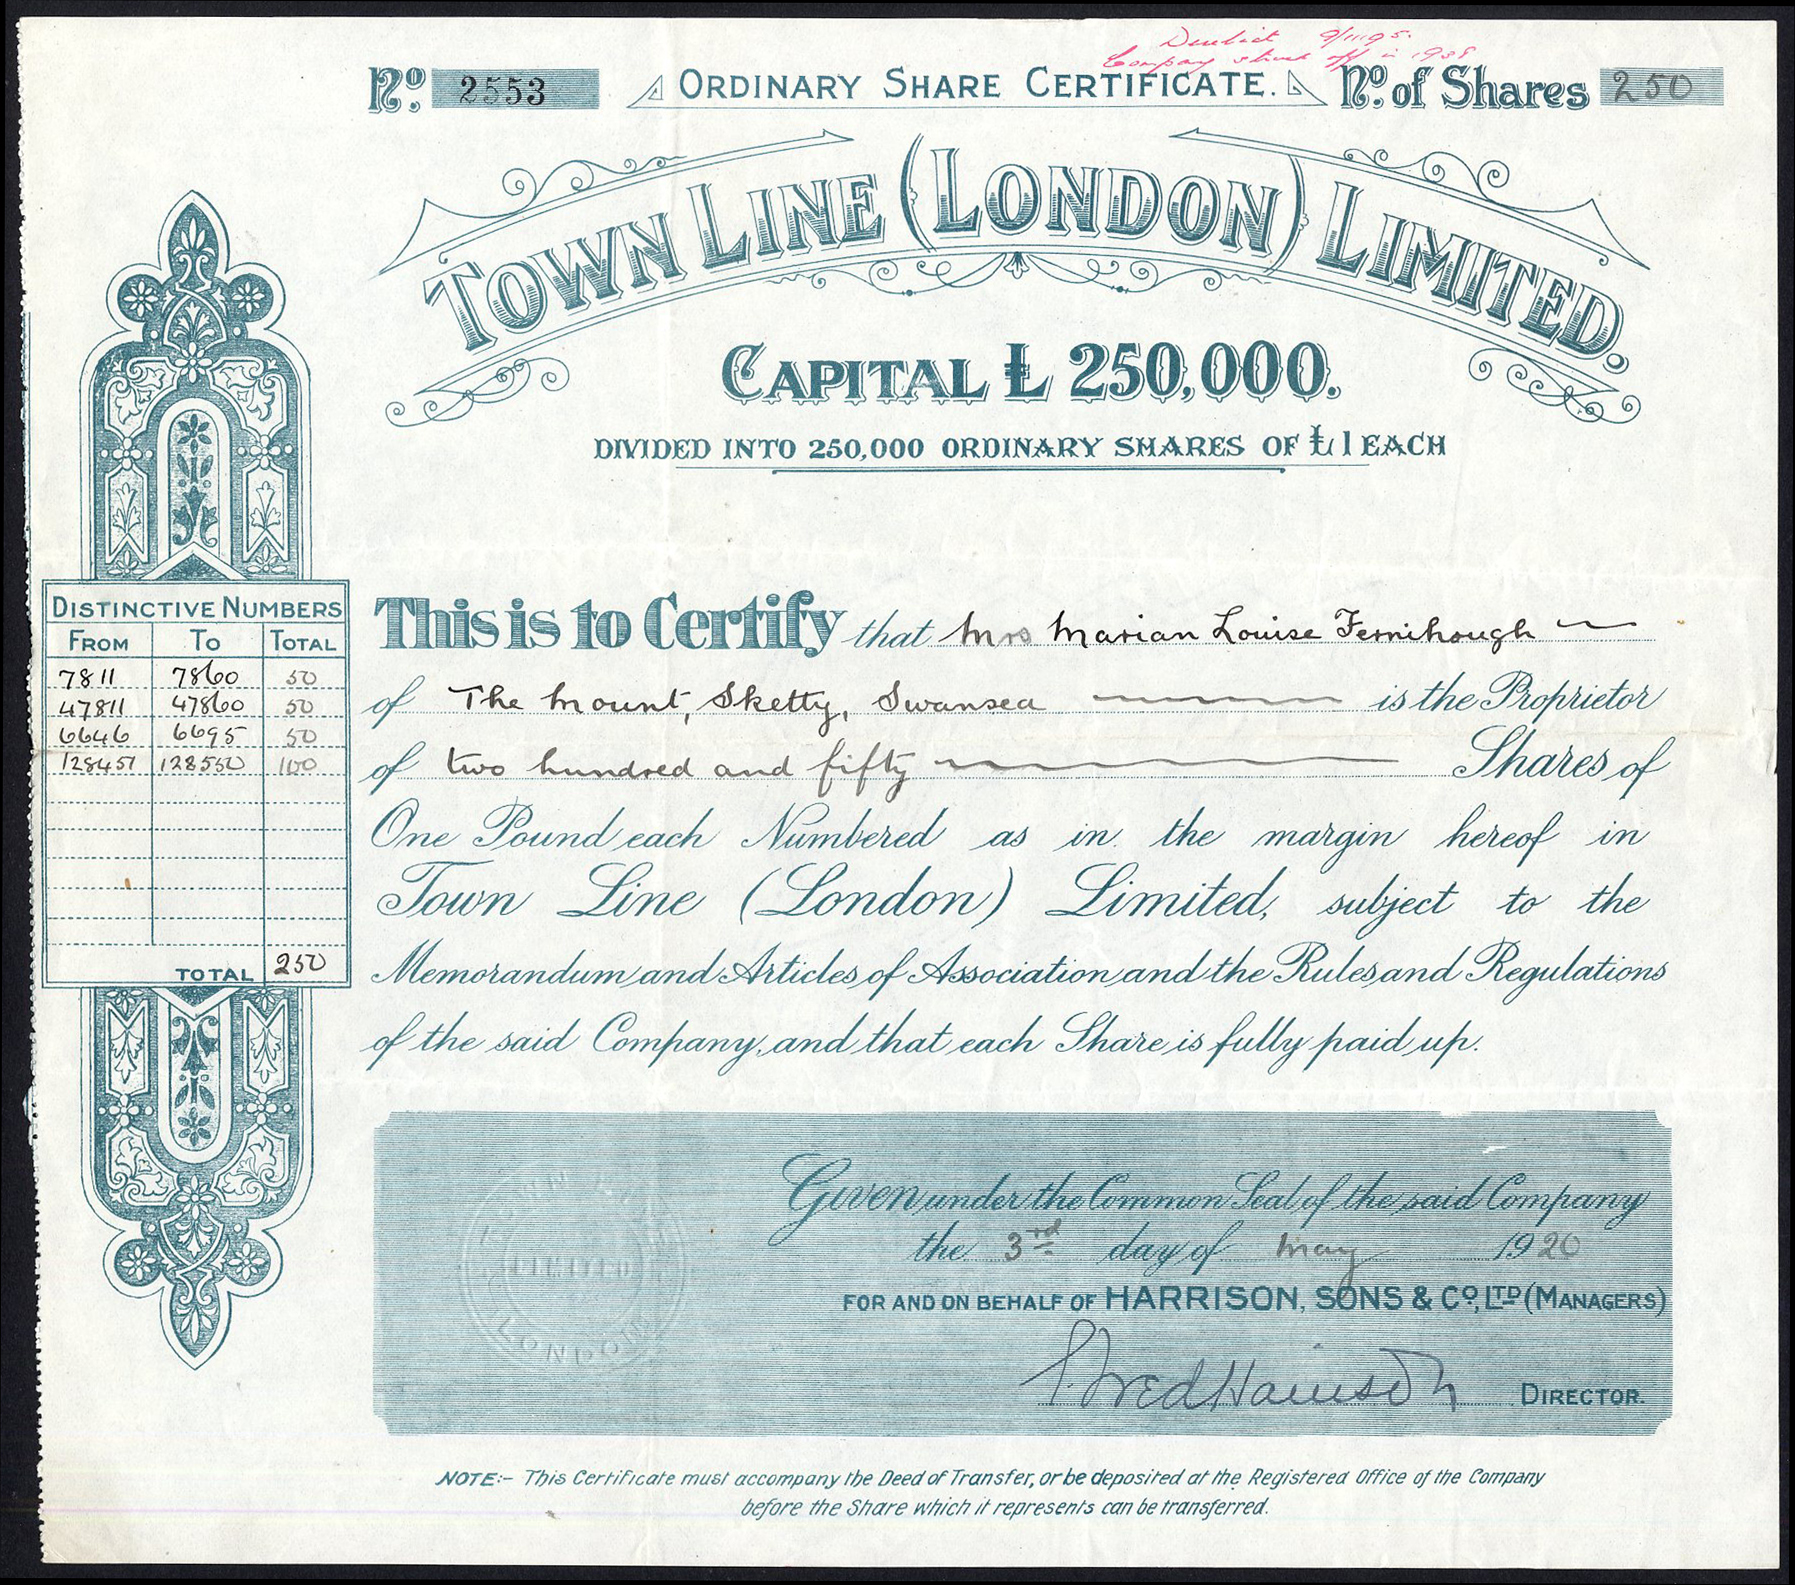 Derelict 9/11/95.
Company struck off in 1938
No. 2553 ORDINARY SHARE CERTIFICATE. No. of Shares 250
TOWN LINE (LONDON) LIMITED.
CAPITAL £ 250,000.
DIVIDED INTO 250,000 ORDINARY SHARES OF £1 EACH
DISTINCTIVE NUMBERS
FROM TO TOTAL
7811 7860 50
47811 47860 50
6646 6695 50
128451 128550 100
TOTAL 250
This is to Certify that Mrs Marian Louise Fernihough
of The Mount, Sketty, Swansea is the Proprietor
of two hundred and fifty Shares of
One Pound each Numbered as in the margin hereof in
Town Line (London) Limited, subject to the
Memorandum and Articles of Association and the Rules and Regulations
of the said Company, and that each Share is fully paid up.
Given under the Common Seal of the said Company
the 3rd day of May 1920
FOR AND ON BEHALF OF HARRISON, SONS & Co., LTD (MANAGERS)
Fred Harrison DIRECTOR.
LIMITED
LONDON
NOTE:- This Certificate must accompany the Deed of Transfer, or be deposited at the Registered Office of the Company
before the Share which it represents can be transferred.